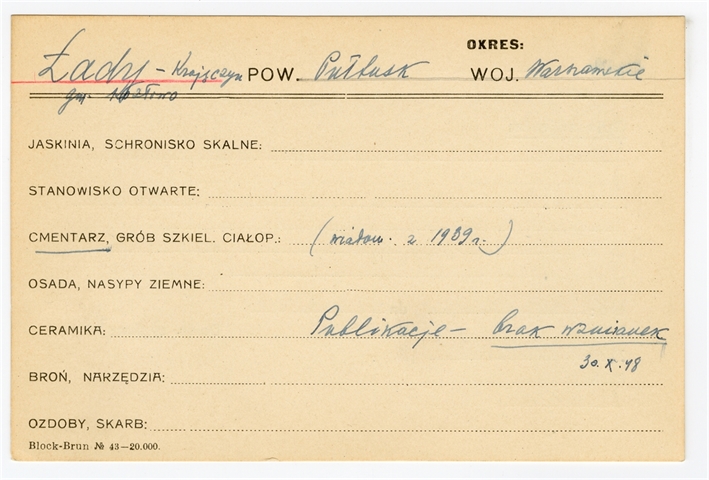 OKRES:
Łady - Krajęczyn POW. Pułtusk WOJ. Warszawskie
gm. Kozłowo
JASKINIA, SCHRONISKO SKALNE:
STANOWISKO OTWARTE:
CMENTARZ, GRÓB SZKIEL. CIAŁOP.: (wiadom. z 1939 r.)
OSADA, NASYPY ZIEMNE:
CERAMIKA: Publikacje - brak wzmianek
30.X.48
BROŃ, NARZĘDZIA:
OZDOBY, SKARB:
Block-Brun № 43—20.000.